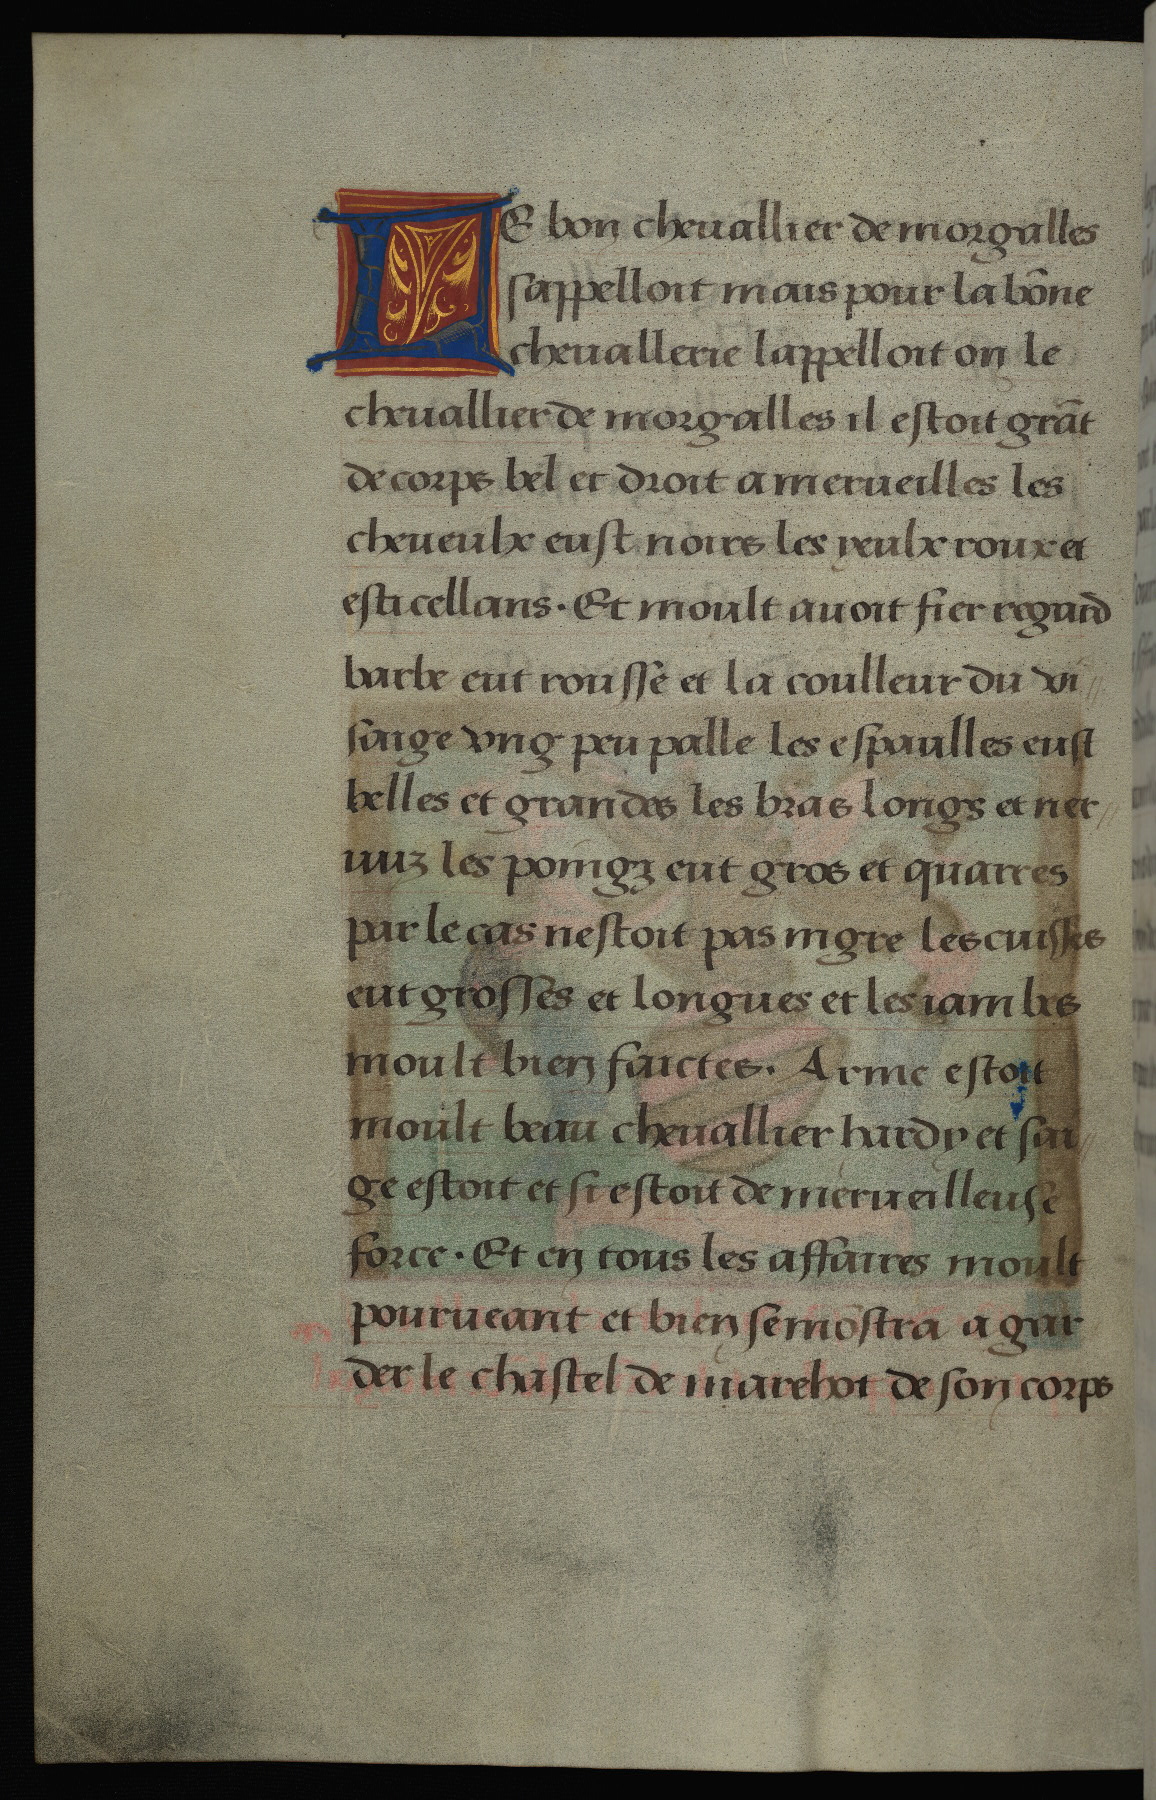 LE bon cheuallier de morgalles
sappelloit mais pour la bône
cheuallerie lappelloit on le
cheuallier de morgalles il estoit grãt
de corps bel et droit a merueilles les
cheueulx eust noirs les yeulx roux et
esticellans. Et moult auoit fier regard
barbe eut rousse et la coulleur du vi//
saige vng peu palle les espaulles eust
belles et grandes les bras longs et ner//
uuz les poingz eut gros et quarres
par le cas nestoit pas mgre les cuisses
eut grosses et longues et les iambes
moult bien faictes. Arme estoit
moult beau cheuallier hardy et sai//
ge estoit et si estoit de merueilleuse
force. Et en tous les affaires moult
pourueant et bien se mõstra a gar
der le chastel de marehot de son corps